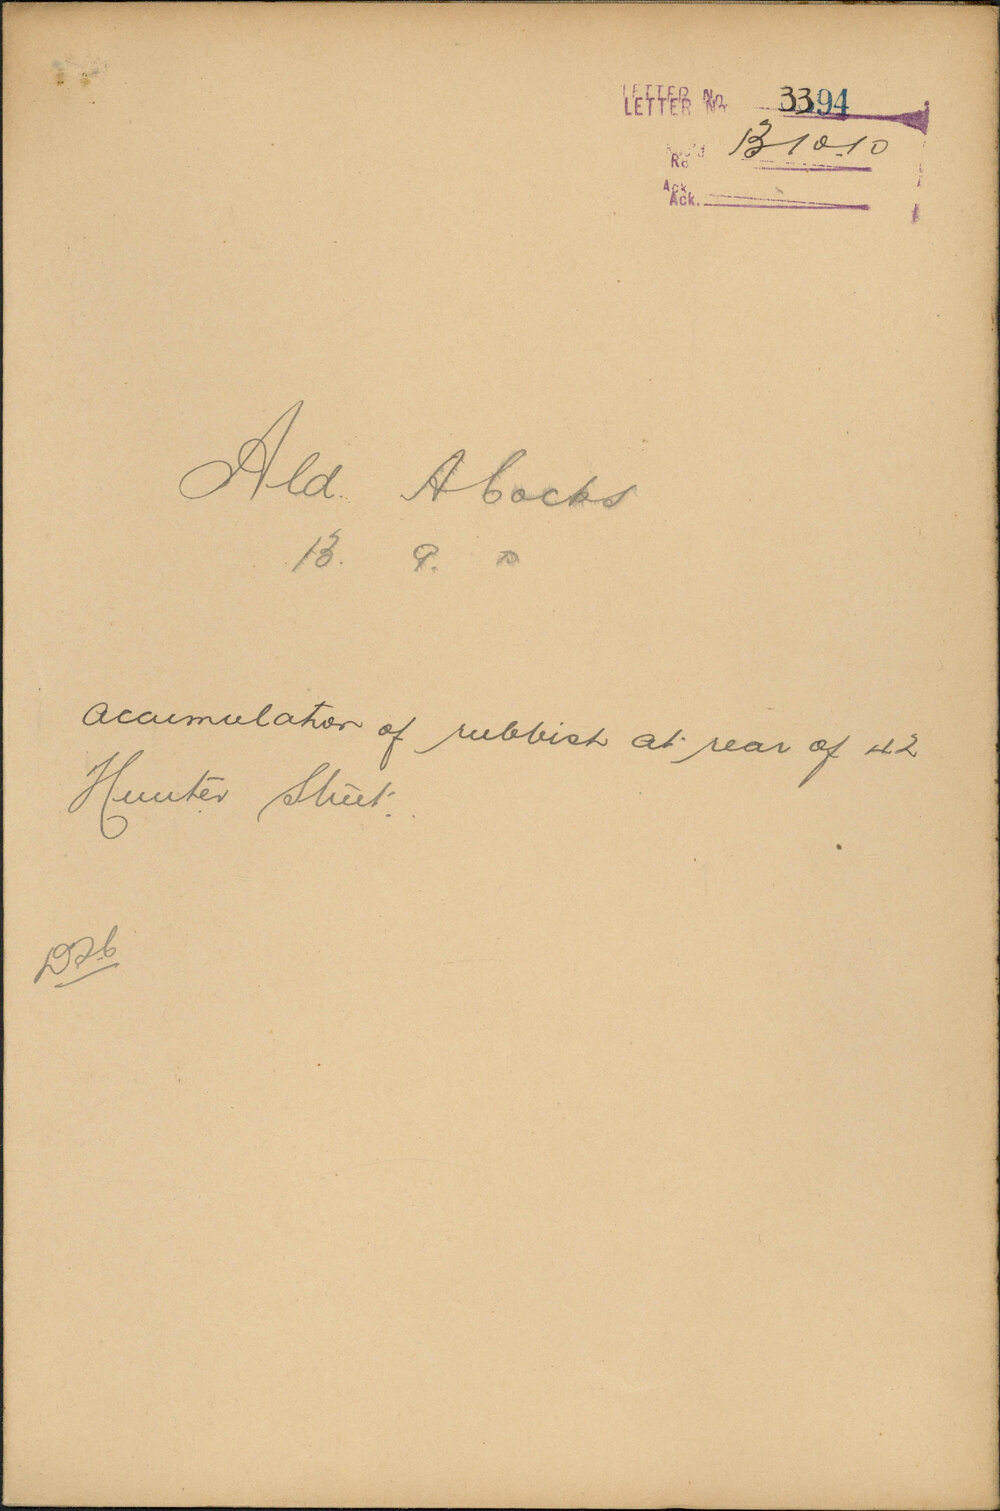 LETTER No. 3394
Rec'd 13-10-10
Ack.
Ald. A Cocks
13. 9. 10
accumulation of rubbish at rear of 42
Hunter Street.